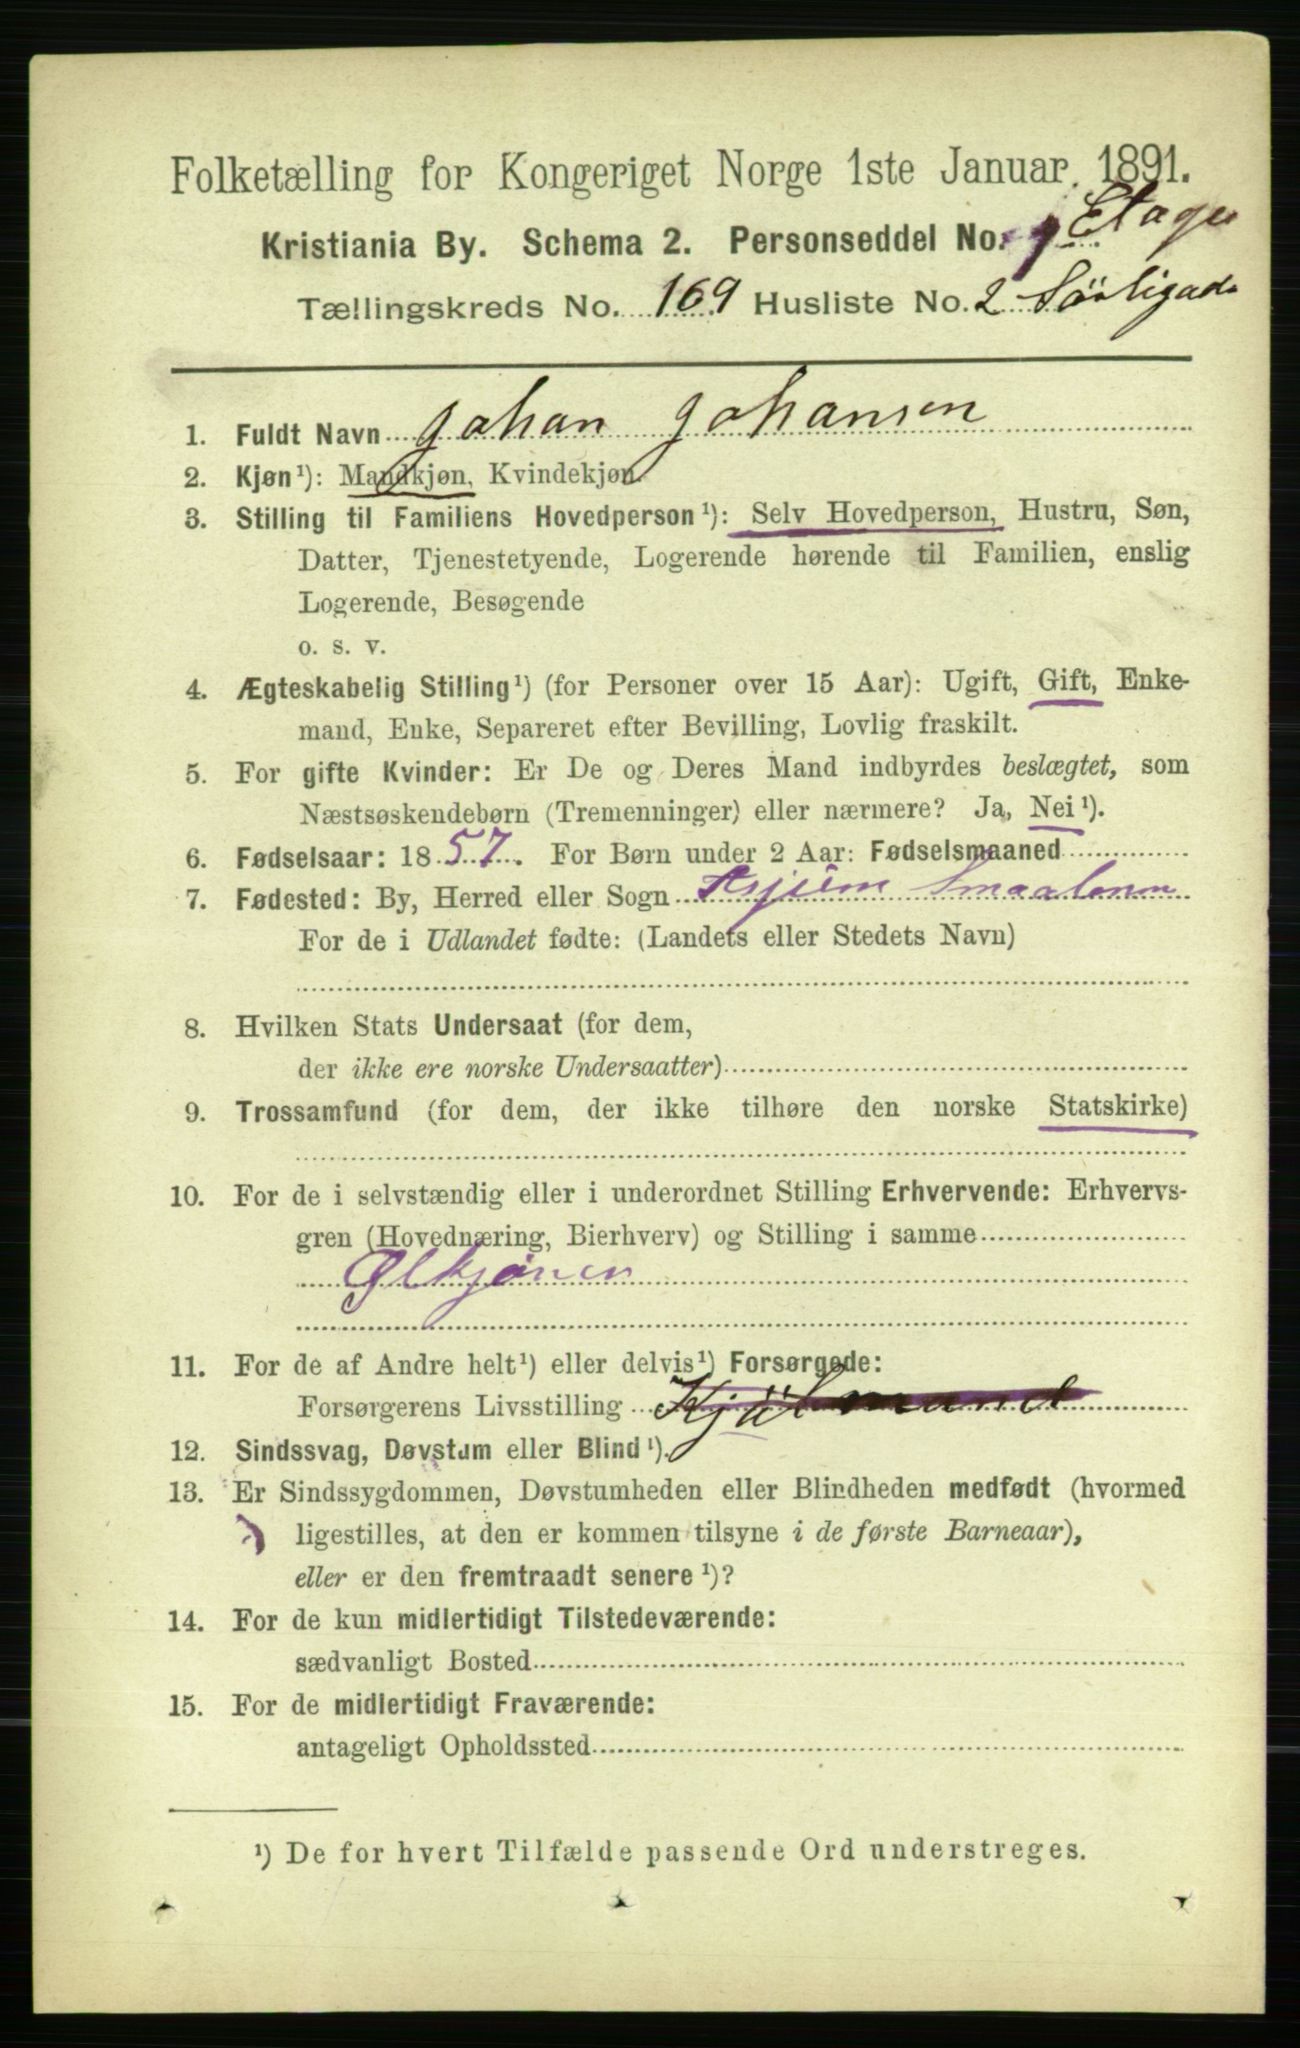 Folketælling for Kongeriget Norge 1ste Januar 1891.
Kristiania By. Schema 2. Personseddel No. 1 Etage
Tællingskreds No. 169 Husliste No. 2 Sörligade
1. Fuldt Navn Johan Johansen
2. Kjøn¹): Mandkjøn, Kvindekjøn.
3. Stilling til Familiens Hovedperson¹): Selv Hovedperson, Hustru, Søn,
Datter, Tjenestetyende, Logerende hørende til Familien, enslig
Logerende, Besøgende
o. s. v.
4. Ægteskabelig Stilling¹) (for Personer over 15 Aar): Ugift, Gift, Enke-
mand, Enke, Separeret efter Bevilling, Lovlig fraskilt.
5. For gifte Kvinder: Er De og Deres Mand indbyrdes beslægtet, som
Næstsøskendebørn (Tremenninger) eller nærmere? Ja, Nei¹).
6. Fødselsaar: 1857. For Børn under 2 Aar: Fødselsmaaned
7. Fødested: By, Herred eller Sogn Asjim Smaalenen
For de i Udlandet fødte: (Landets eller Stedets Navn)
8. Hvilken Stats Undersaat (for dem,
der ikke ere norske Undersaatter)
9. Trossamfund (for dem, der ikke tilhøre den norske Statskirke)
10. For de i selvstændig eller i underordnet Stilling Erhvervende: Erhvervs-
gren (Hovednæring, Bierhverv) og Stilling i samme
Ølkjører
11. For de af Andre helt¹) eller delvis¹) Forsørgede:
Forsørgerens Livsstilling
12. Sindssvag, Døvstum eller Blind¹).
13. Er Sindssygdommen, Døvstumheden eller Blindheden medfødt (hvormed
ligestilles, at den er kommen tilsyne i de første Barneaar),
eller er den fremtraadt senere¹)?
14. For de kun midlertidigt Tilstedeværende:
sædvanligt Bosted
15. For de midlertidigt Fraværende:
antageligt Opholdssted
¹) De for hvert Tilfælde passende Ord understreges.